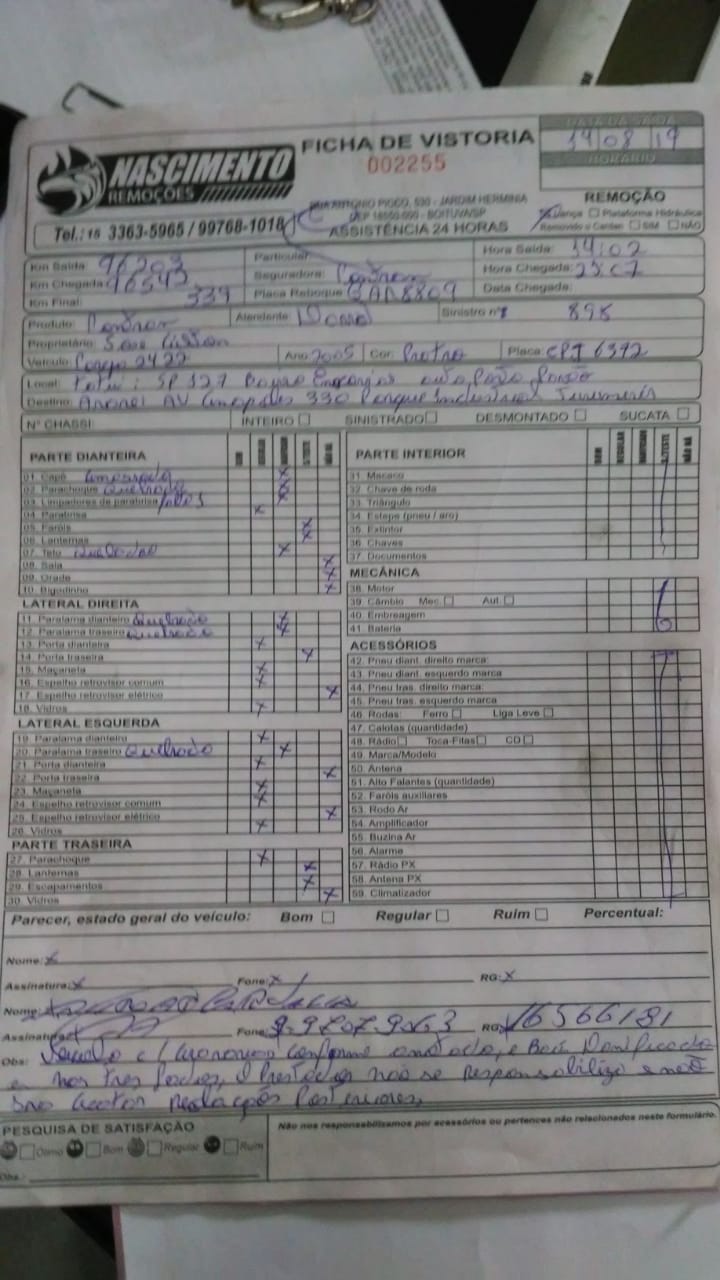 NASCIMENTO
REMOÇÕES
FICHA DE VISTORIA
002255
DATA DA SAÍDA
14/08/19
HORÁRIO
RUA ANTONIO PIGCO, 530 - JARDIM HERMINIA
CEP 18550-000 - BOITUVA/SP
ASSISTÊNCIA 24 HORAS
Tel.: 15 3363-5965 / 99768-1018
REMOÇÃO
Lança Plataforma Hidráulica
Removido o Cardan SIM NÃO
Km Saída: 96203 Particular Hora Saída: 14:02
Km Chegada: 96542 Seguradora: Hora Chegada: 23:07
Km Final: 339 Placa Reboque: Data Chegada:
Produto: Atendente: Sinistro nº 898
Proprietário: Jose
Veículo: Cargo 2422 Ano: 2005 Cor: Preto Placa: 6392
Local: SP 127
Destino: AV 330 Parque Industrial
Nº CHASSI: INTEIRO SINISTRADO DESMONTADO SUCATA
PARTE DIANTEIRA BOM REGULAR S/TESTE NÃO HÁ
01. Capô Amassado
02. Parachoque Quebrado
03. Limpadores de parabrisa
04. Parabrisa
05. Faróis
06. Lanternas
07. Teto Quebrado
08. Saia
09. Grade
10. Bigodinho
LATERAL DIREITA
11. Paralama dianteiro Quebrado
12. Paralama traseiro Quebrado
13. Porta dianteira
14. Porta traseira
15. Maçaneta
16. Espelho retrovisor comum
17. Espelho retrovisor elétrico
18. Vidros
LATERAL ESQUERDA
19. Paralama dianteiro
20. Paralama traseiro Quebrado
21. Porta dianteira
22. Porta traseira
23. Maçaneta
24. Espelho retrovisor comum
25. Espelho retrovisor elétrico
26. Vidros
PARTE TRASEIRA
27. Parachoque
28. Lanternas
29. Escapamentos
30. Vidros
PARTE INTERIOR BOM REGULAR S/TESTE NÃO HÁ
31. Macaco
32. Chave de roda
33. Triângulo
34. Estepe (pneu / aro)
35. Extintor
36. Chaves
37. Documentos
MECÂNICA
38. Motor
39. Câmbio Mec. Aut.
40. Embreagem
41. Bateria
ACESSÓRIOS
42. Pneu diant. direito marca:
43. Pneu diant. esquerdo marca:
44. Pneu tras. direito marca:
45. Pneu tras. esquerdo marca
46. Rodas: Ferro Liga Leve
47. Calotas (quantidade)
48. Rádio Toca-Fitas CD
49. Marca/Modelo
50. Antena
51. Alto Falantes (quantidade)
52. Faróis auxiliares
53. Rodo Ar
54. Amplificador
55. Buzina Ar
56. Alarme
57. Rádio PX
58. Antena PX
59. Climatizador
Parecer, estado geral do veículo: Bom Regular Ruim Percentual:
Nome: x
Assinatura: x Fone: x RG: x
Nome:
Assinatura: Fone: 9.9707.9063 RG: 16566181
Obs: conforme anotado, e Baú Danificado
e nos tres lados, o Prestador não se responsabiliza e não
Posteriores.
PESQUISA DE SATISFAÇÃO
Ótimo Bom Regular Ruim
Obs.:
Não nos responsabilizamos por acessórios ou pertences não relacionados neste formulário.